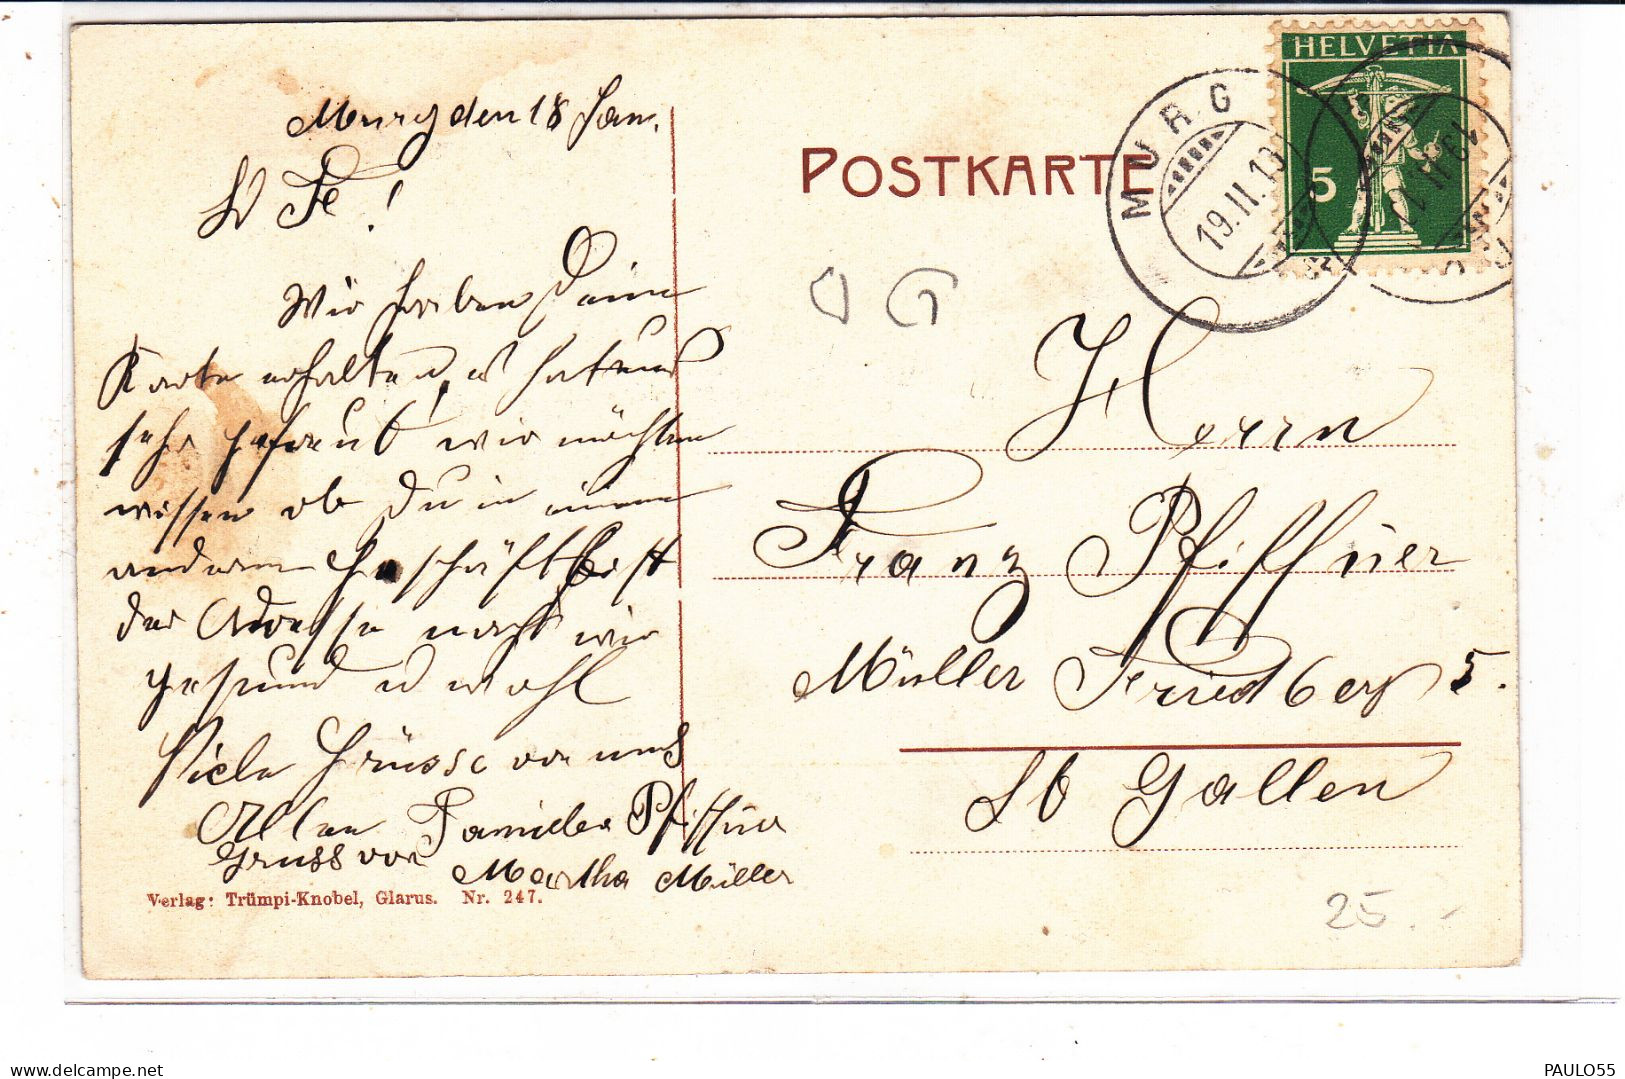 Murg den 18 Jan.
L Fr !
Wir haben Deine
Karte erhalten, es hat uns
sehr gefreut! wir möchten
wissen ob Du in einem
anderen Geschäft bist
der Adresse nach wir
gesund u wohl
Viele Grüsse von uns
Allen Familie Pfiffner
Gruss von Martha Müller
Verlag: Trümpi-Knobel, Glarus. Nr. 247.
POSTKARTE
HELVETIA
5
MURG
19.II.13
Herrn
Franz Pfiffner
Müller Friedberg 5.
St Gallen
25.-
PAULO55